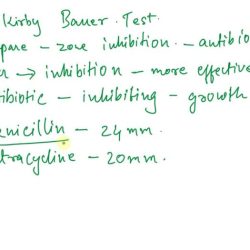 Kirby Bauer Test.
zone inhibition - antibio
→ inhibition - more effective
ibiotic - inhibiting - growth
nicillin - 24 mm.
tracycline - 20 mm.